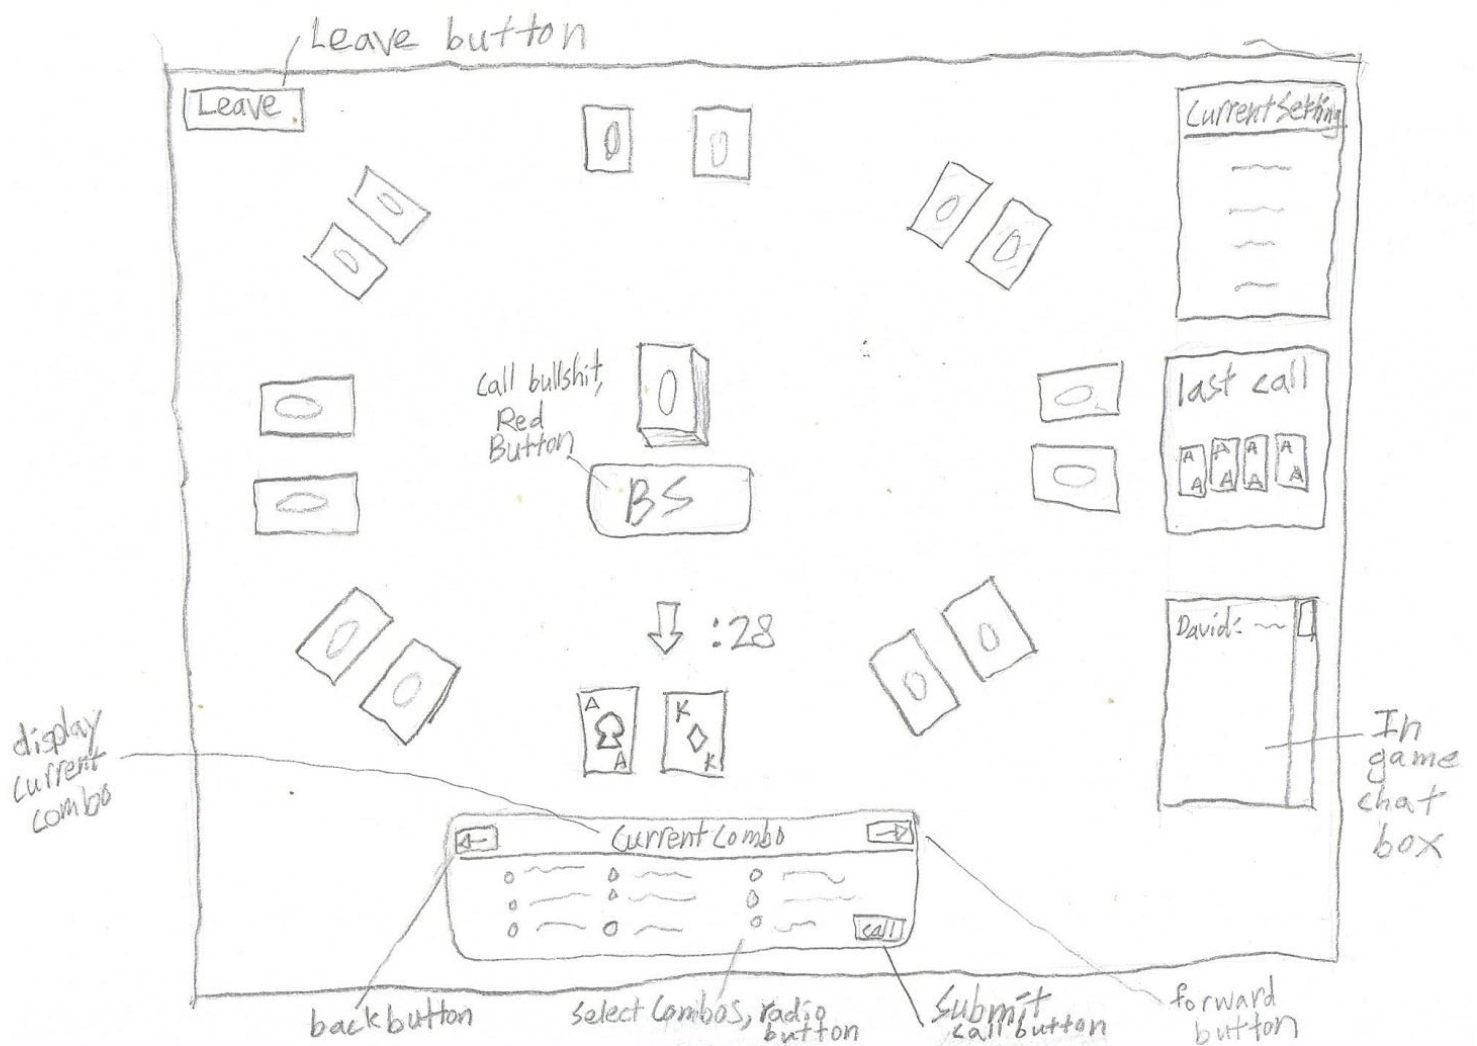 Leave button
Leave
Current Setting
Call bullshit,
Red
Button
BS
last call
A A A A
A A A A
:28
David:
A K
A K
display
current
combo
In
game
chat
box
Current Combo
call
back button
Select Combos, radio
button
Submit
call button
forward
button